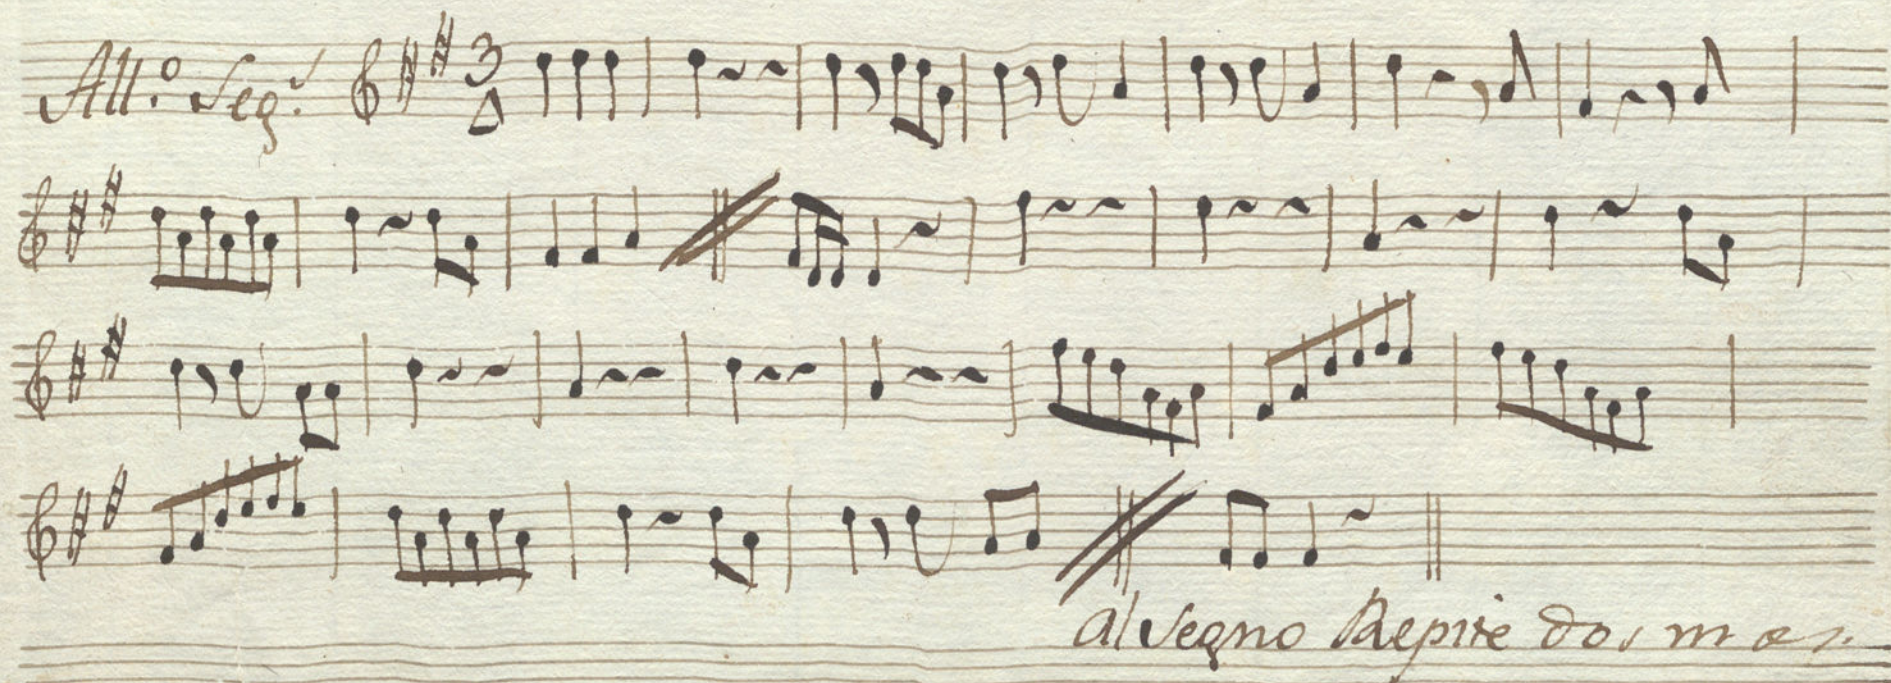 All.º Seg.s
3
4
Al Segno Repite dos mas.